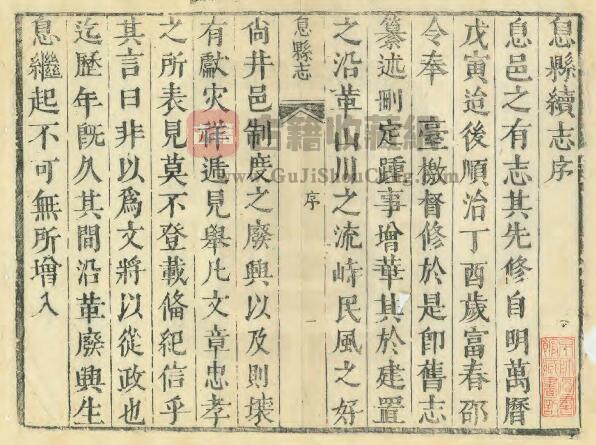 息縣續志序
息邑之有志其先修自明萬曆
戊寅迨後順治丁酉歲富春邵
令奉 臺檄督修於是卽舊志
纂述刪定踵事增華其於建置
之沿革山川之流峙民風之好
息縣志
序
一
尙井邑制度之廢興以及則壤
有獻灾祥遞見舉凡文章忠孝
之所表見莫不登載偹紀信乎
其言曰非以爲文將以從政也
迄歷年旣久其間沿革廢興生
息繼起不可無所增入
古籍收藏網
www.GuJiShouCang.com